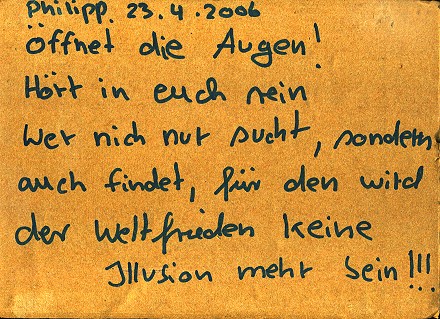 Philipp. 23.4.2006
Öffnet die Augen!
Hört in euch rein
Wer nich nur sucht, sondern
auch findet, für den wird
der Weltfrieden keine
Illusion mehr sein!!!